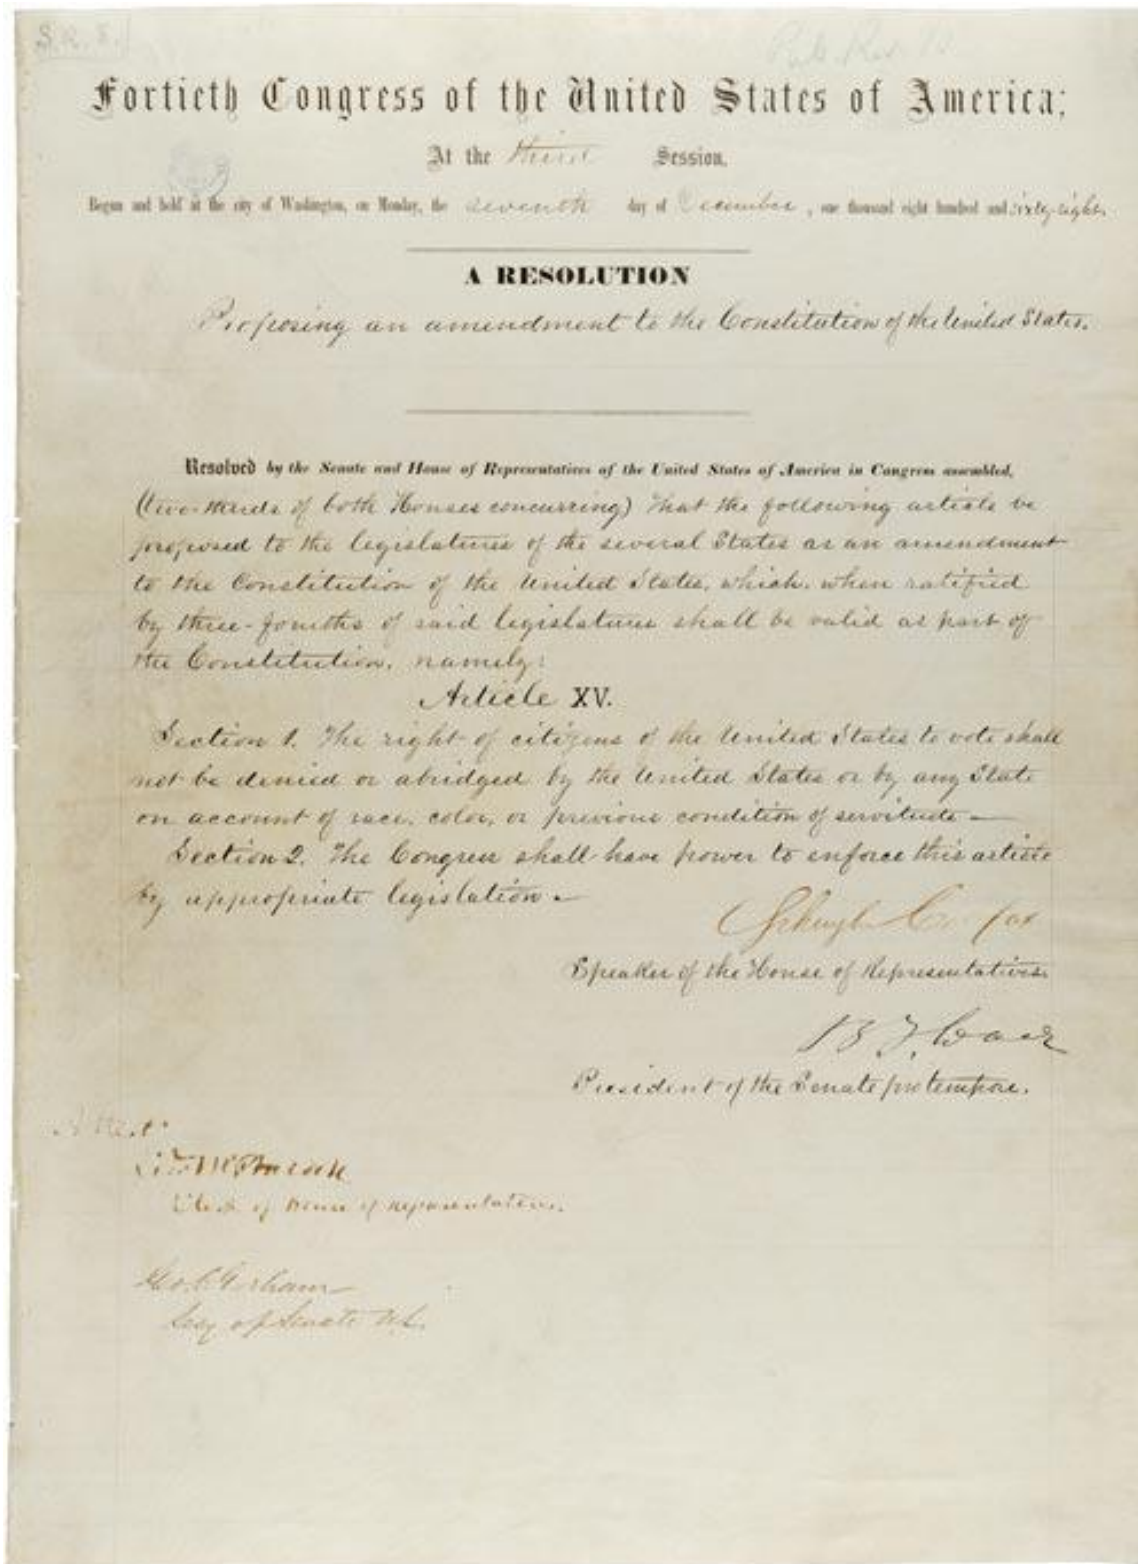 S.R. 8.
Pub. Res.
Fortieth Congress of the United States of America;
At the third Session,
Begun and held at the city of Washington, on Monday, the seventh day of December, one thousand eight hundred and sixty-eight.
A RESOLUTION
Proposing an amendment to the Constitution of the United States.
Resolved by the Senate and House of Representatives of the United States of America in Congress assembled,
(two-thirds of both Houses concurring) That the following article be
proposed to the legislatures of the several States as an amendment
to the Constitution of the United States, which, when ratified
by three-fourths of said legislatures shall be valid as part of
the Constitution, namely:
Article XV.
Section 1. The right of citizens of the United States to vote shall
not be denied or abridged by the United States or by any State
on account of race, color, or previous condition of servitude—
Section 2. The Congress shall have power to enforce this article
by appropriate legislation—
Schuyler Colfax
Speaker of the House of Representatives.
B F Wade
President of the Senate pro tempore.
Attest:
Edwd McPherson
Clerk of House of Representatives.
Geo. C. Gorham
Secy of Senate U.S.